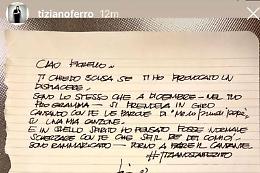 tizianoferro 12m
CIAO FIORELLO.
TI CHIEDO SCUSA SE TI HO PROVOCATO UN
DISPIACERE.
SONO LO STESSO CHE A DICEMBRE - NEL TUO
PROGRAMMA - SI PRENDEVA IN GIRO
CANTANDO CON TE LE PAROLE DI
SU UNA MIA CANZONE.
E IN QUELLO SPIRITO HO PENSATO FOSSE NORMALE
SCHERZARE CON TE CHE SEI IL RE DEI COMICI.
SONO RAMMARICATO - TORNO A FARE IL CANTANTE.
#TIZIANOSTAIFERITO